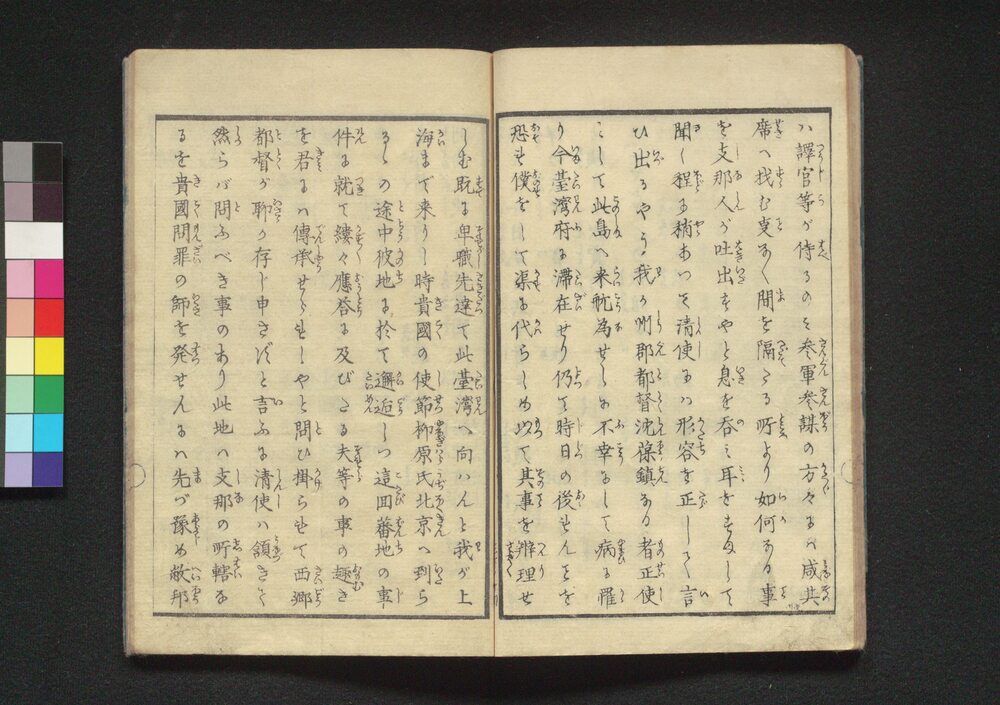 ハ譯官等が侍るのミ参軍参謀の方々ハ咸其
席へ找む事なく間を隔たる所より如何なる事
を支那人が吐出すやと息を呑ミ耳をすまして
聞く程に稍あつて清使ハ形容を正しくし言
ひ出るやう我が州郡都督沈葆鎮なる者正使
にして此島へ来航為せしに不幸にして病に罹
り今臺湾府に滞在せり仍て時日の後れんことを
恐れ僕をして渠に代らしめ以て其事を辨理せ
しむ既に卑職先達て此臺湾へ向ハんと我が上
海まで来りし時貴國の使節柳原氏北京へ到ら
るゝの途中彼地に於て邂逅しつ這回蕃地の事
件に就て縷々應答に及びたる夫等の事の趣き
を君にハ傳承せられしやと問ひ掛られて西郷
都督が聊か存じ申さずと言ふに清使ハ領きて
然らバ問ふべき事のあり此地ハ支那の所轄な
るを貴國問罪の師を発せんにハ先づ豫め敝邦